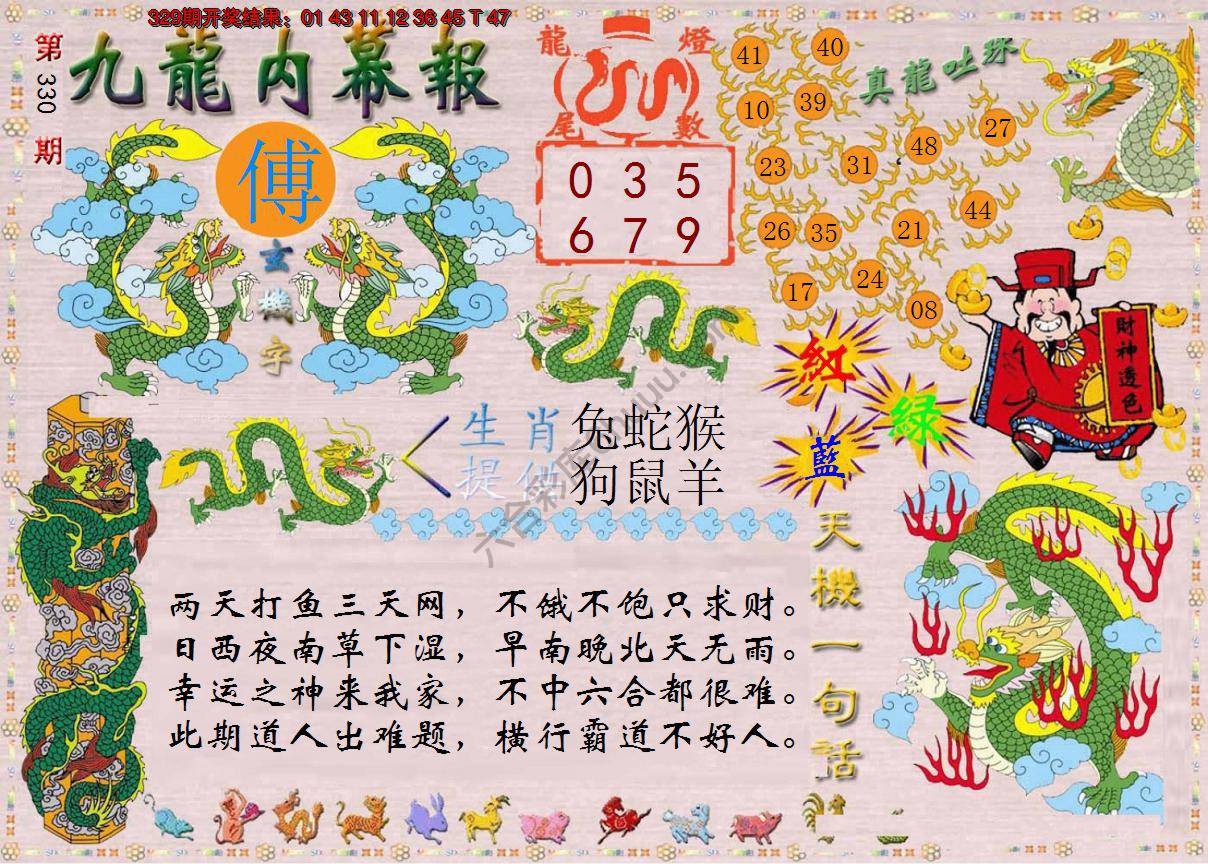 329期开奖结果：01 43 11 12 36 45 T 47
第330期
九龍内幕報
傅
玄機字
龍燈
尾數
0 3 5
6 7 9
真龍吐珠
41 40
10 39
23 31 48 27
26 35 21 44
17 24 08
財神透色
紅
綠
藍
生肖 兔蛇猴
提供 狗鼠羊
天機一句話
两天打鱼三天网，不饿不饱只求财。
日西夜南草下湿，早南晚北天无雨。
幸运之神来我家，不中六合都很难。
此期道人出难题，横行霸道不好人。